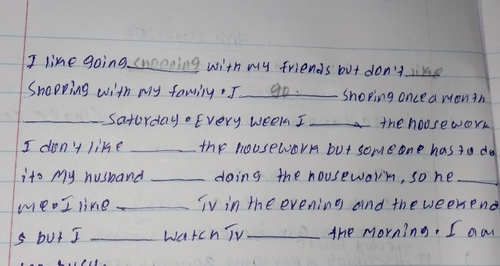 I like going shopping with my friends but don't like
shopping with my family. I go shoping once a month
______ saturday. Every week I ______ the housework
I don't like ______ the housework but someone has to do
it. My husband ______ doing the housework, so he ______
me. I like ______ TV in the evening and the weekend
s but I ______ watch TV ______ the morning. I am